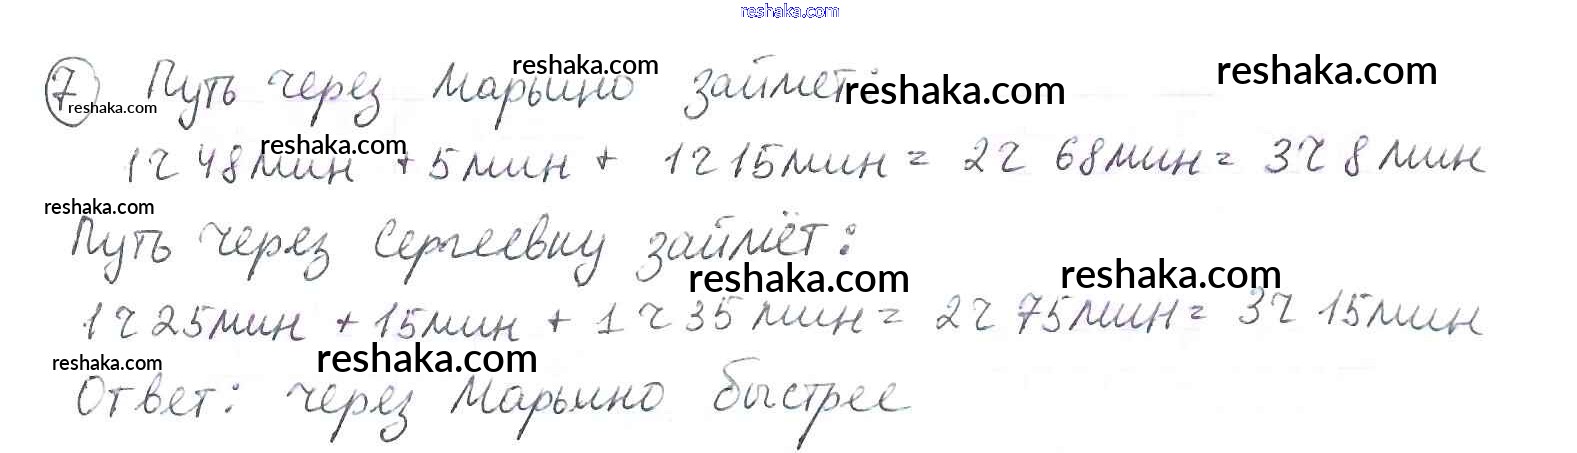 reshaka.com
7 Путь через Марьино займет:
reshaka.com reshaka.com reshaka.com reshaka.com
1ч 48мин + 5мин + 1ч 15мин = 2ч 68мин = 3ч 8мин
reshaka.com
reshaka.com
Путь через Сергеевку займёт:
reshaka.com reshaka.com
1ч 25мин + 15мин + 1ч 35мин = 2ч 75мин = 3ч 15мин
reshaka.com reshaka.com
Ответ: через Марьино быстрее